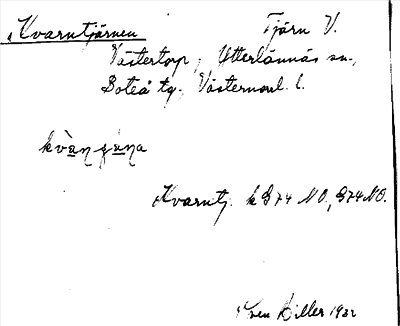 Kvarntjärnen Tjärn V.
Västertorp, Ytterlännäs sn.,
Boteå tg., Västernorrl. l.
Kvarntj. k 874 NO., 874 NO.
Sven Hiller 1932